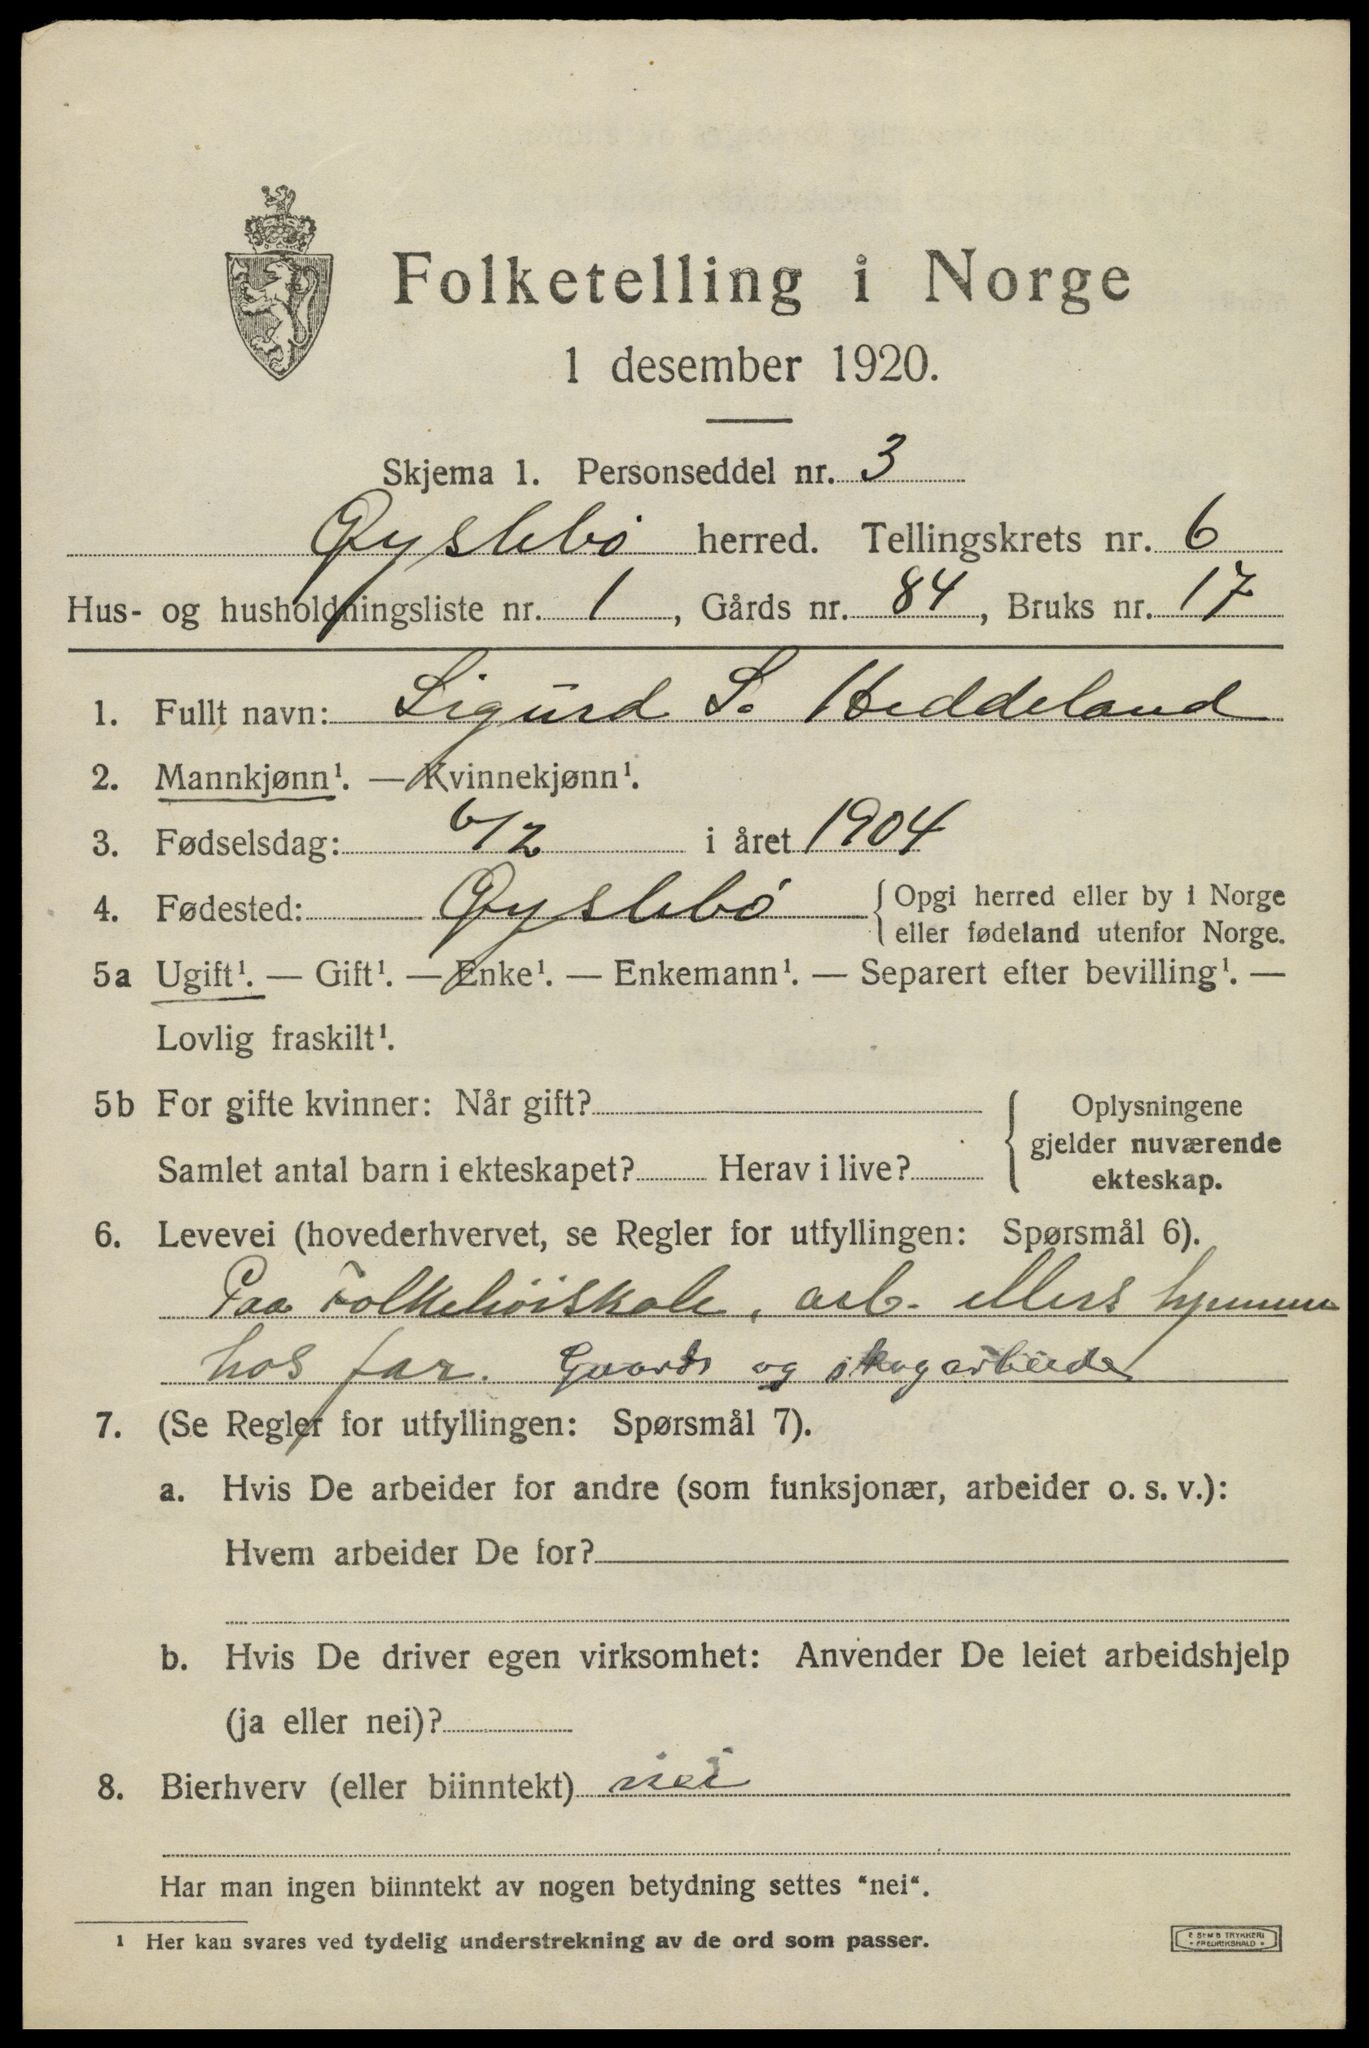 Folketelling i Norge
1 desember 1920.
Skjema 1. Personseddel nr. 3
Øyslebø herred. Tellingskrets nr. 6
Hus- og husholdningsliste nr. 1, Gårds nr. 84, Bruks nr. 17
1. Fullt navn: Sigurd S. Heddeland
2. Mannkjønn¹. — Kvinnekjønn¹.
3. Fødselsdag: 6/2 i året 1904
4. Fødested: Øyslebø {Opgi herred eller by i Norge
eller fødeland utenfor Norge.
5a Ugift¹. — Gift¹. — Enke¹. — Enkemann¹. — Separert efter bevilling¹. —
Lovlig fraskilt¹.
5b For gifte kvinner: Når gift? { Oplysningene
gjelder nuværende
Samlet antal barn i ekteskapet? Herav i live?
ekteskap.
6. Levevei (hovederhvervet, se Regler for utfyllingen: Spørsmål 6).
Paa Folkehöiskole, arb. ellers hjemme
hos far. Gaards og skogarbeide
7. (Se Regler for utfyllingen: Spørsmål 7).
a. Hvis De arbeider for andre (som funksjonær, arbeider o. s. v.):
Hvem arbeider De for?
b. Hvis De driver egen virksomhet: Anvender De leiet arbeidshjelp
(ja eller nei)?
8. Bierhverv (eller biinntekt) nei
Har man ingen biinntekt av nogen betydning settes "nei".
¹ Her kan svares ved tydelig understrekning av de ord som passer.
E SEMS TRYKKERI
• FREDRIKSHALD •